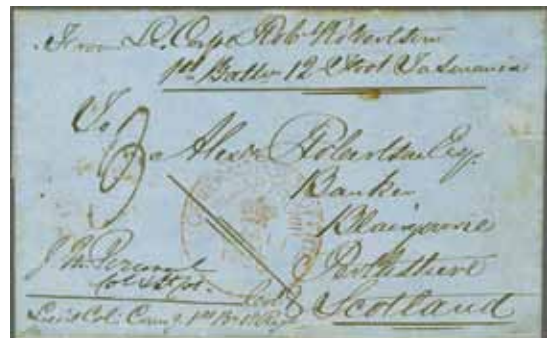 From L. Corpl Robt Robertson
1st Battn 12 Foot Tasmania
To
3
Alexr Robertson Esq.
Banker
Blairgowrie
Perthshire
Scotland
Lieut Col. Comg. 1st Bn 12 Regt